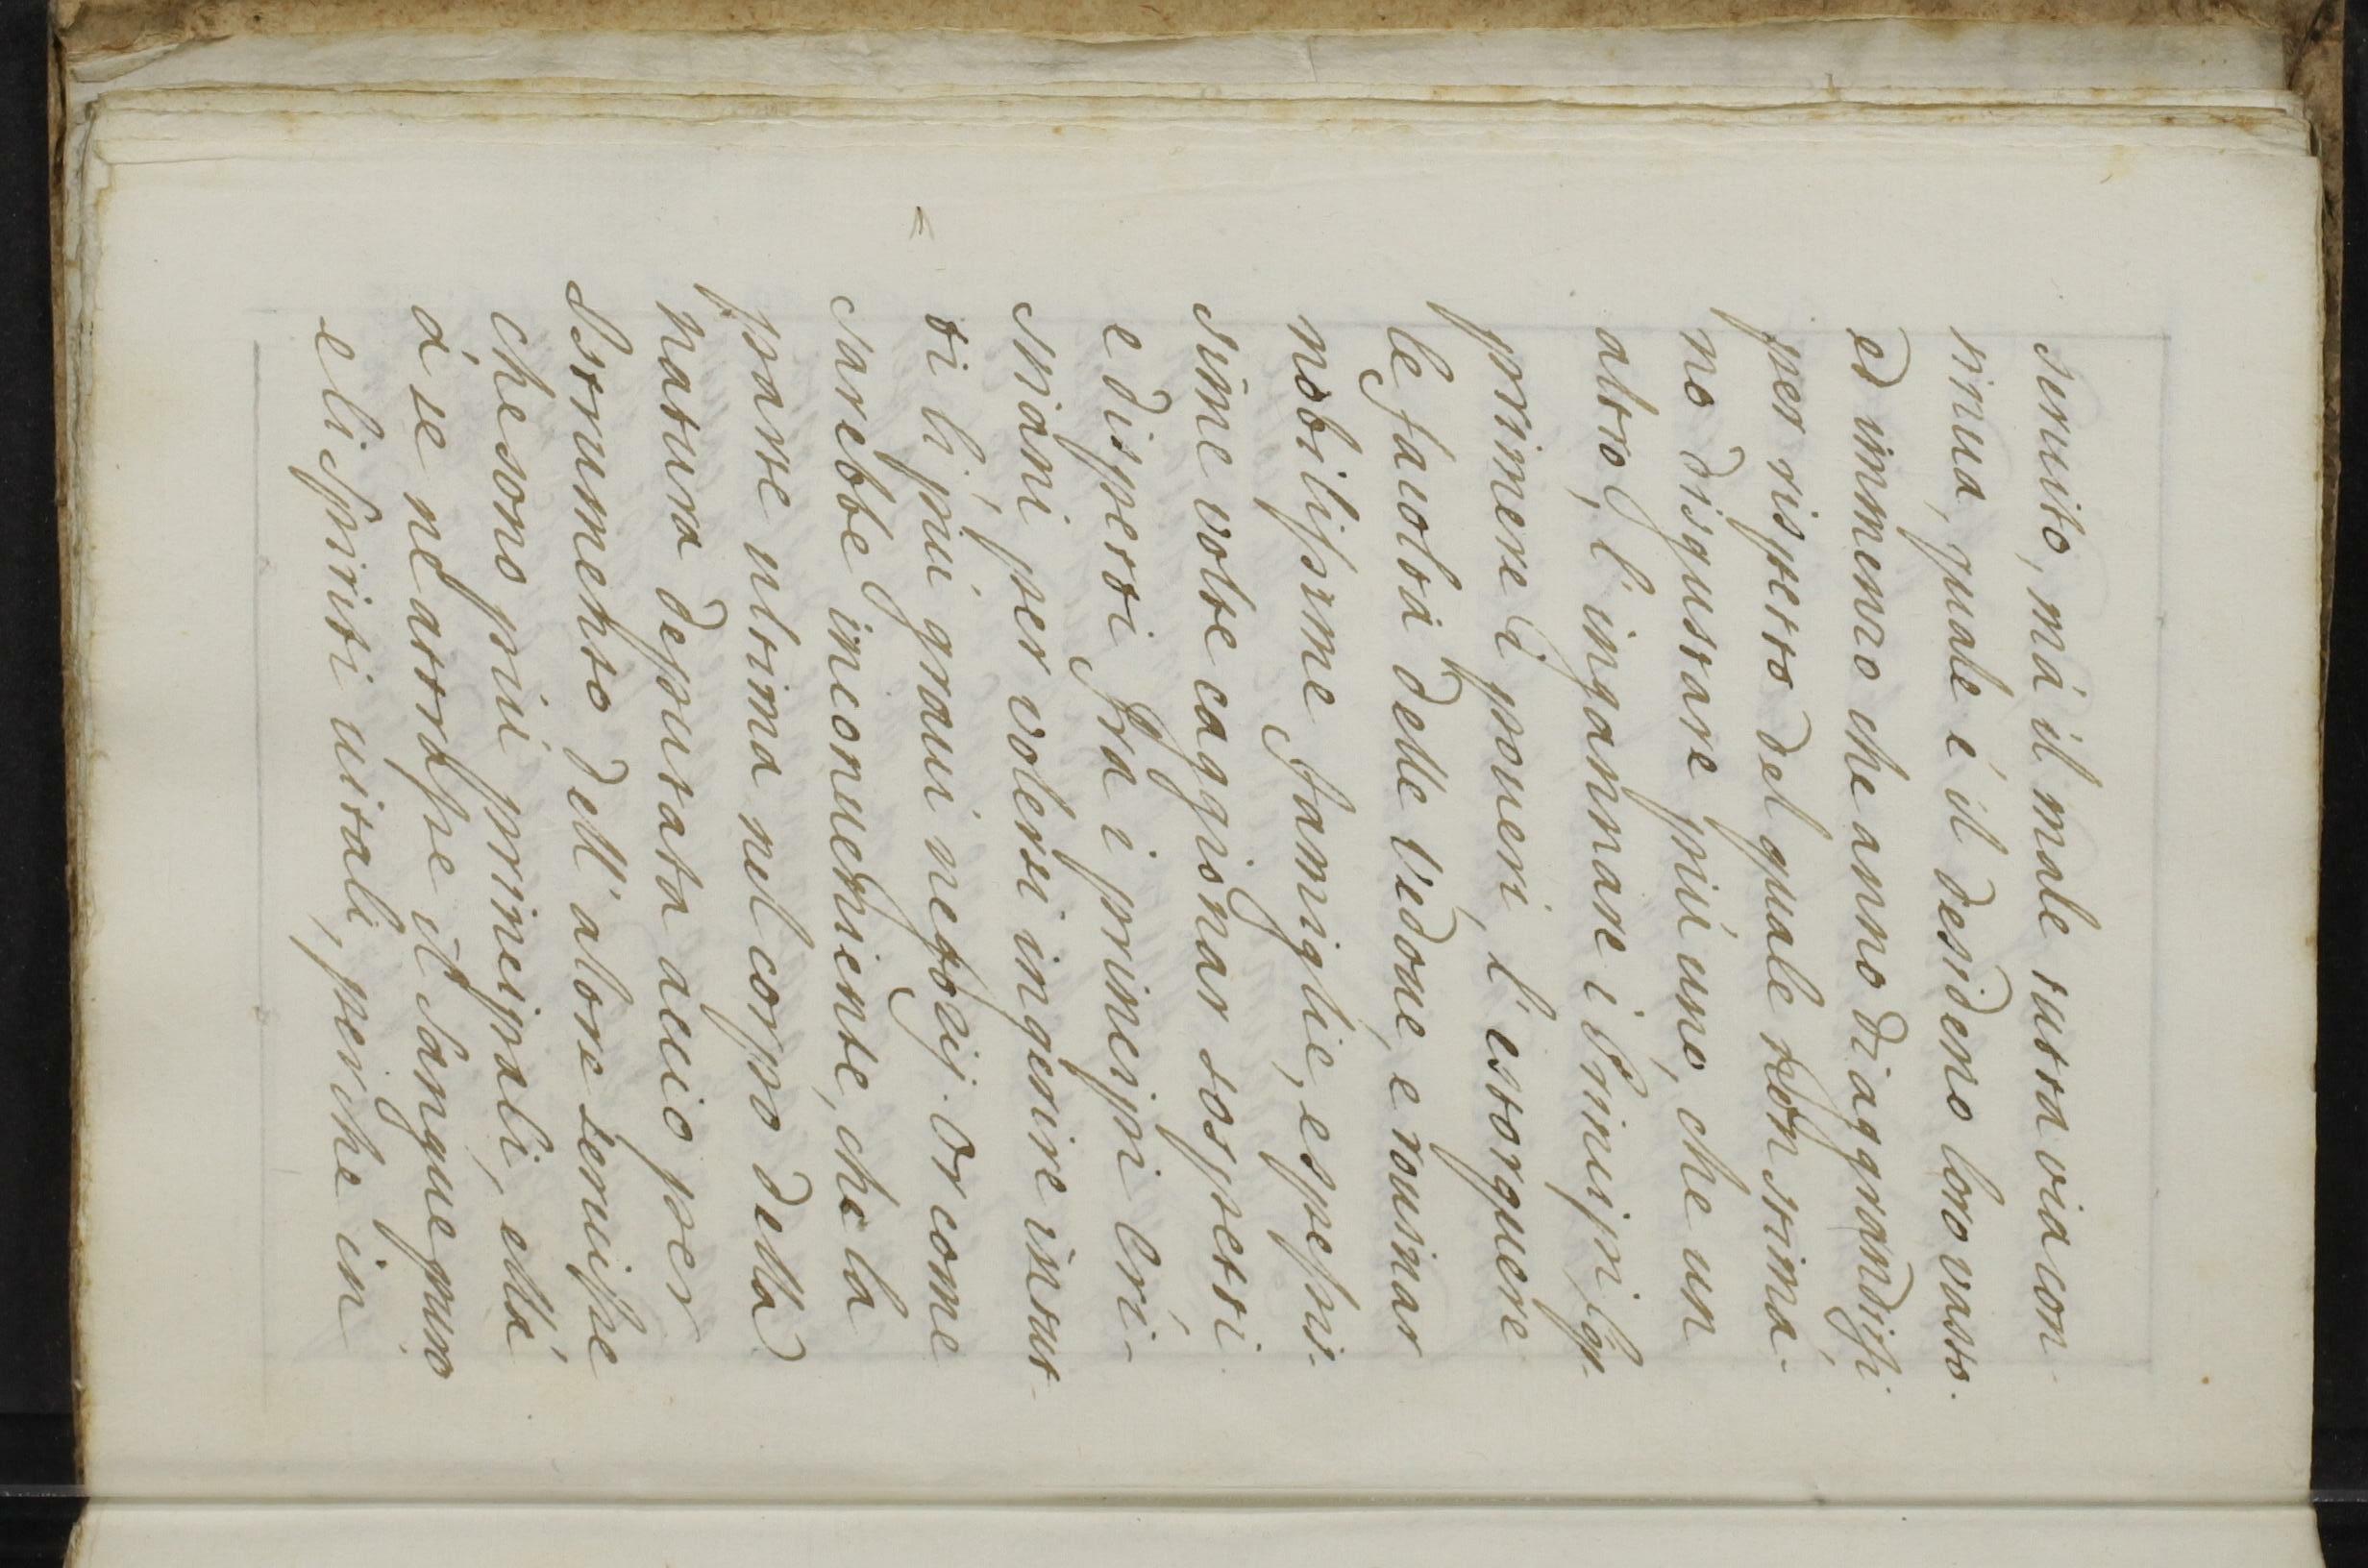 seruito, mà il male tutta via con-
tinua, quale è il desiderio loro vasto.
ed immenzo che anno di aggrandissi,
per rispetto del quale non stima-
no disgustare più uno, che un
altro, l'ingannare i Principi, l'op-
primere i poueri, l'estorquere
le facoltà delle Vedoue, e rouinar
nobilissime famiglie, e spessis-
sime volte caggionar sospetti
e dispetti frà i principi Cri-
stiani, per volersi ingerire in tut-
ti li più graui negozij. Or come
sarebbe inconueniente, che la
parte ultima nel corpo della
natura deputata acciò per
Istrumento dell'altore seruisse
che sono più principali, ella
à se ne attrasse il sangue puro
e li spiriti uitali, perche in